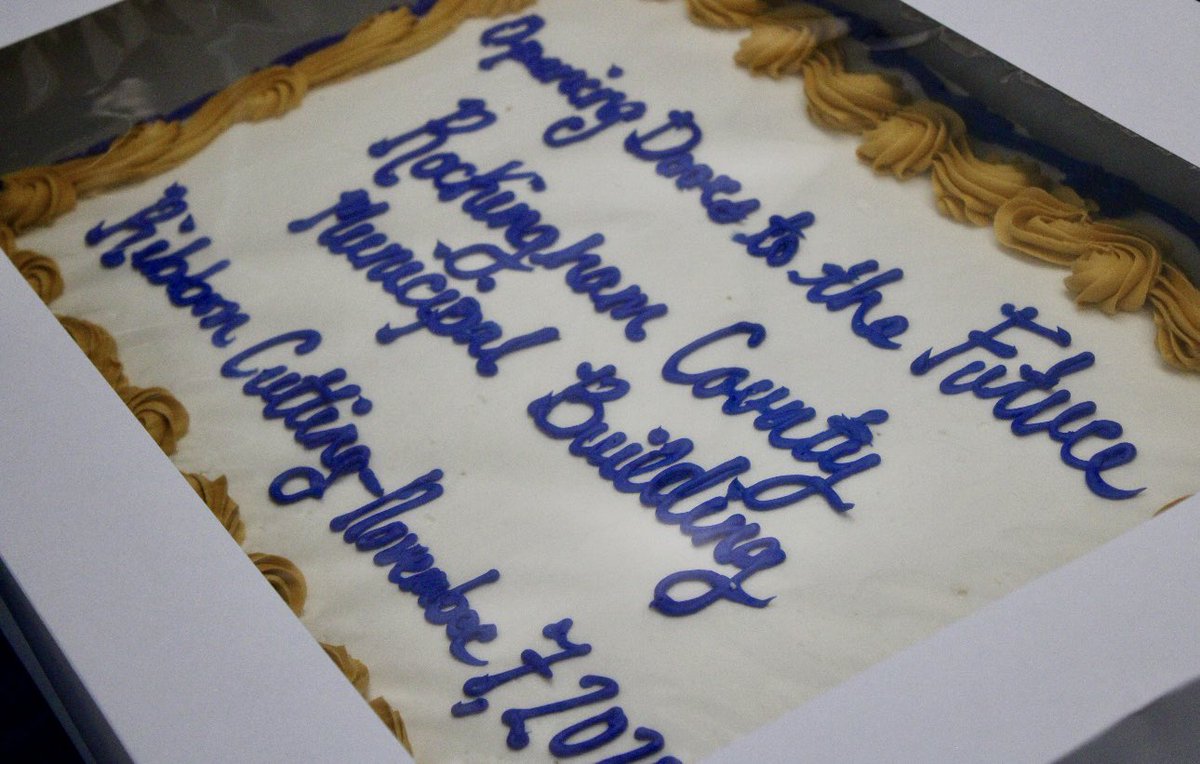 Opening Doors to the Future
Rockingham County
Municipal Building
Ribbon Cutting-November 7, 202